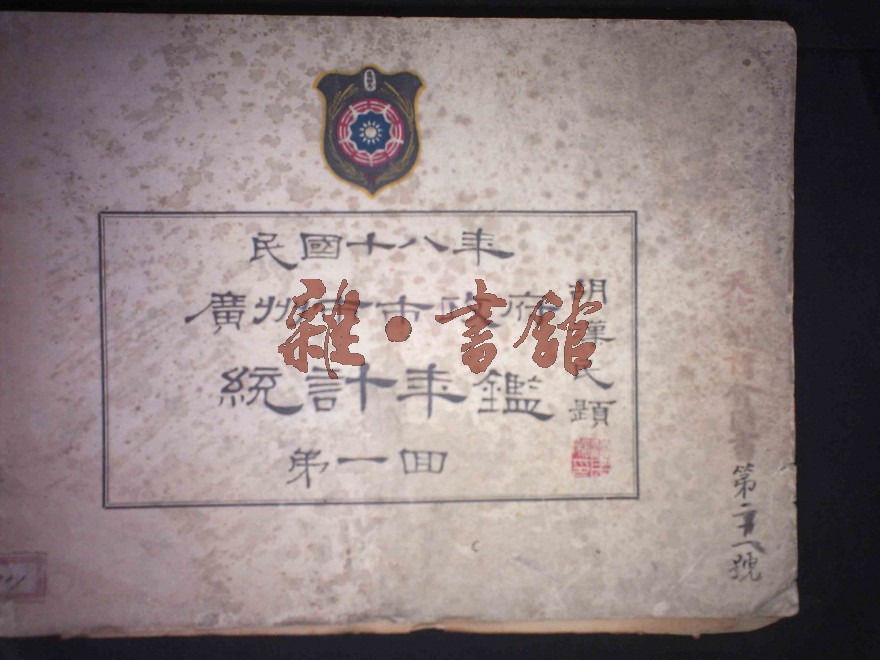 民國十八年
廣州市市政府
統計年鑑
第一回
胡漢民題
雜·書館